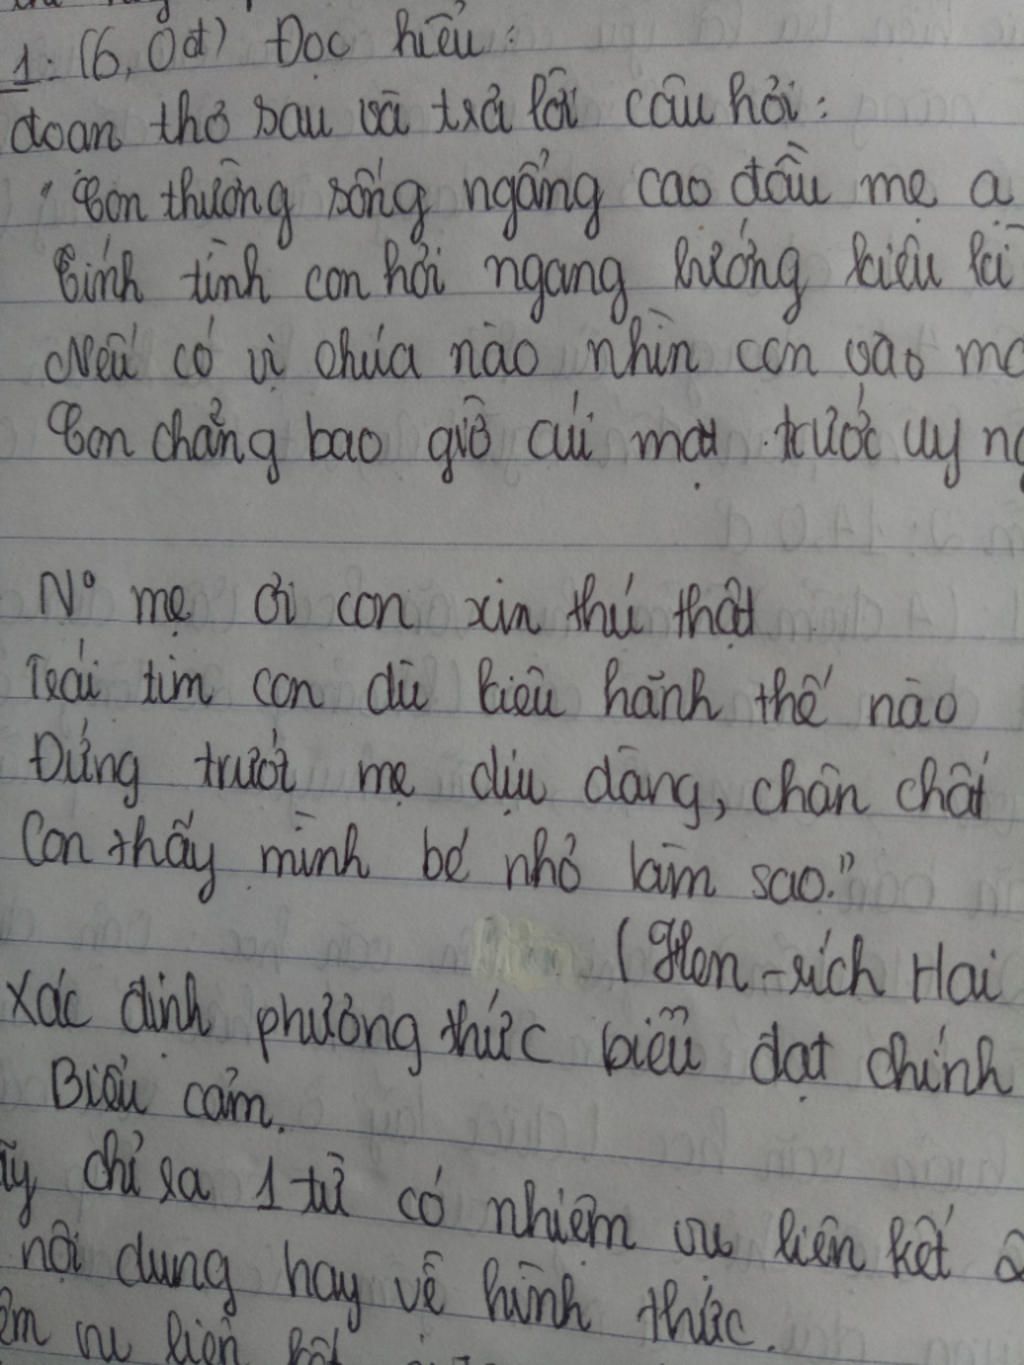 1: (6,0đ) Đọc hiểu:
đoạn thơ sau và trả lời câu hỏi:
"Con thường sống ngẩng cao đầu mẹ ạ
Tính tình con hơi ngang bướng kiêu kì
Nếu có vị chúa nào nhìn con vào
Con chẳng bao giờ cúi mặt trước uy
No mẹ ơi con xin thú thật
Trái tim con dù kiêu hãnh thế nào
Đứng trước mẹ dịu dàng, chân chất
Con thấy mình bé nhỏ làm sao."
(Hen-rích Hai
Xác định phương thức biểu đạt chính
Biểu cảm.
chỉ ra 1 từ có nhiệm vụ liên kết 2
nội dung hay về hình thức.
vụ liên kết